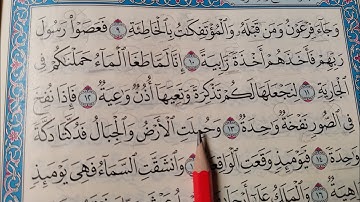 وَجَآءَ فِرْعَوْنُ وَمَن قَبْلَهُۥ وَٱلْمُؤْتَفِكَٰتُ بِٱلْخَاطِئَةِ ٩ فَعَصَوْا۟ رَسُولَ
رَبِّهِمْ فَأَخَذَهُمْ أَخْذَةً رَّابِيَةً ١٠ إِنَّا لَمَّا طَغَا ٱلْمَآءُ حَمَلْنَٰكُمْ فِى
ٱلْجَارِيَةِ ١١ لِنَجْعَلَهَا لَكُمْ تَذْكِرَةً وَتَعِيَهَآ أُذُنٌ وَٰعِيَةٌ ١٢ فَإِذَا نُفِخَ
فِى ٱلصُّورِ نَفْخَةٌ وَٰحِدَةٌ ١٣ وَحُمِلَتِ ٱلْأَرْضُ وَٱلْجِبَالُ فَدُكَّتَا دَكَّةً
وَٰحِدَةً ١٤ فَيَوْمَئِذٍ وَقَعَتِ ٱلْوَاقِعَةُ ١٥ وَٱنشَقَّتِ ٱلسَّمَآءُ فَهِىَ يَوْمَئِذٍ
وَاهِيَةٌ ١٦ وَٱلْمَلَكُ عَلَىٰٓ أَرْجَآئِهَا